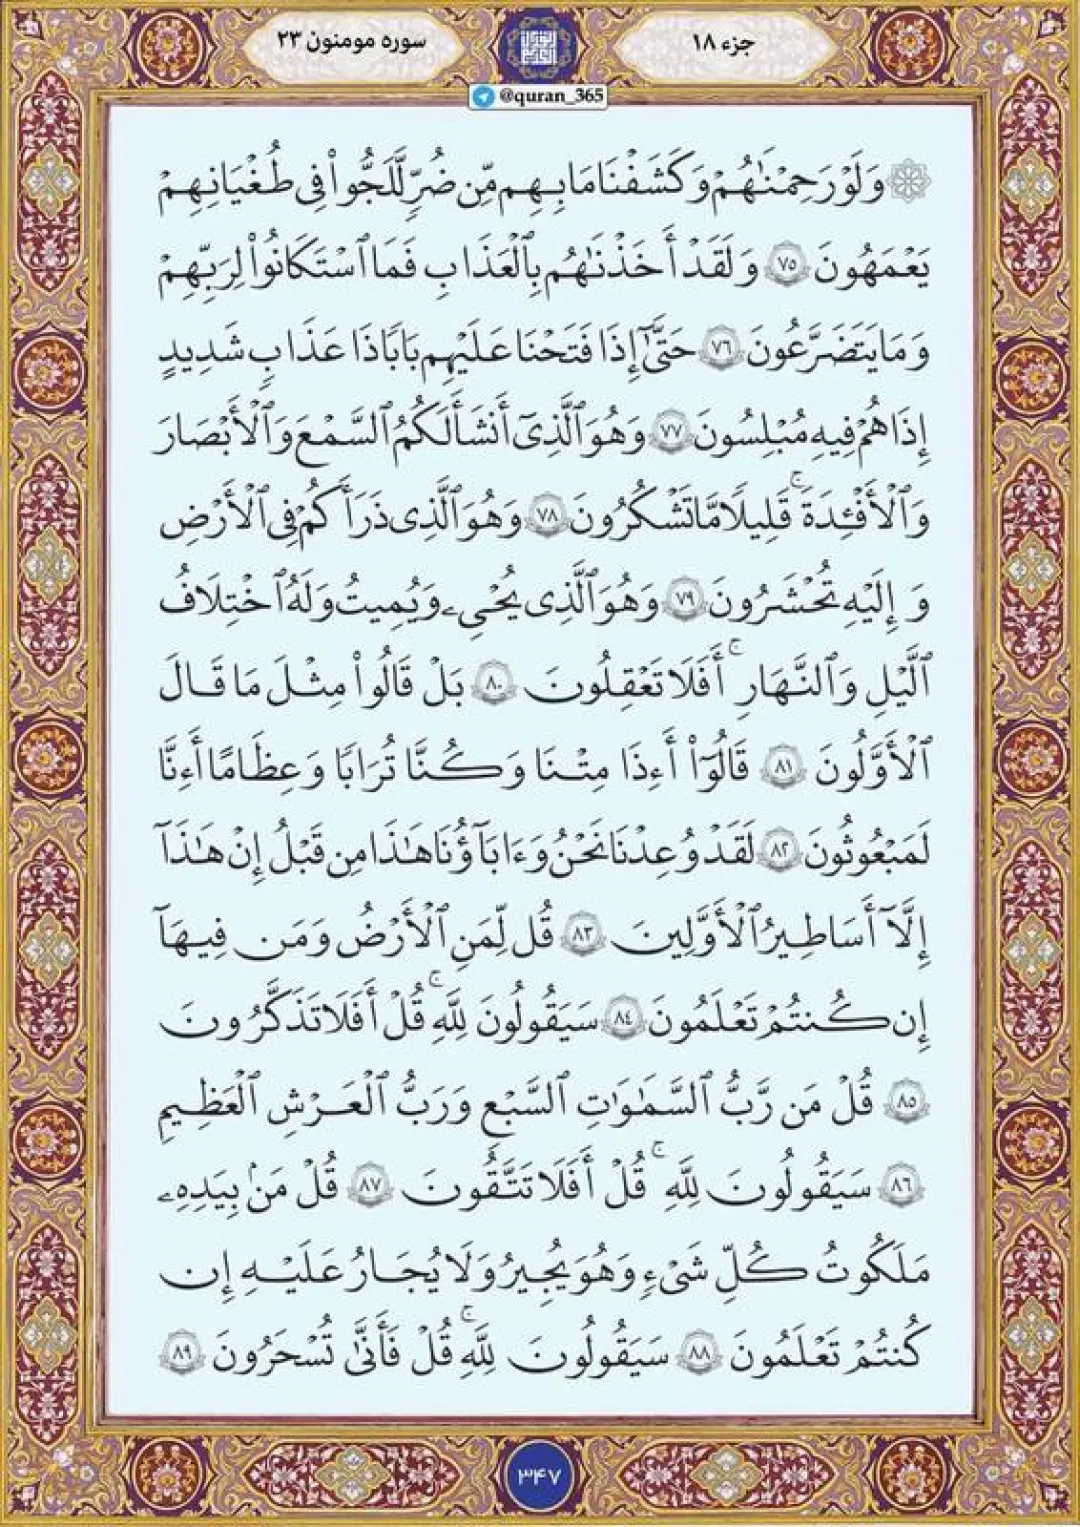 جزء ۱۸
سوره مومنون ۲۳
@quran_365
۞ وَلَوْ رَحِمْنَٰهُمْ وَكَشَفْنَا مَا بِهِم مِّن ضُرٍّ لَّلَجُّوا۟ فِى طُغْيَانِهِمْ
يَعْمَهُونَ ﴿۷۵﴾ وَلَقَدْ أَخَذْنَٰهُم بِٱلْعَذَابِ فَمَا ٱسْتَكَانُوا۟ لِرَبِّهِمْ
وَمَا يَتَضَرَّعُونَ ﴿۷۶﴾ حَتَّىٰٓ إِذَا فَتَحْنَا عَلَيْهِم بَابًا ذَا عَذَابٍ شَدِيدٍ
إِذَا هُمْ فِيهِ مُبْلِسُونَ ﴿۷۷﴾ وَهُوَ ٱلَّذِىٓ أَنشَأَ لَكُمُ ٱلسَّمْعَ وَٱلْأَبْصَارَ
وَٱلْأَفْـِٔدَةَ ۚ قَلِيلًا مَّا تَشْكُرُونَ ﴿۷۸﴾ وَهُوَ ٱلَّذِى ذَرَأَكُمْ فِى ٱلْأَرْضِ
وَإِلَيْهِ تُحْشَرُونَ ﴿۷۹﴾ وَهُوَ ٱلَّذِى يُحْىِۦ وَيُمِيتُ وَلَهُ ٱخْتِلَافُ
ٱلَّيْلِ وَٱلنَّهَارِ ۚ أَفَلَا تَعْقِلُونَ ﴿۸۰﴾ بَلْ قَالُوا۟ مِثْلَ مَا قَالَ
ٱلْأَوَّلُونَ ﴿۸۱﴾ قَالُوٓا۟ أَءِذَا مِتْنَا وَكُنَّا تُرَابًا وَعِظَامًا أَءِنَّا
لَمَبْعُوثُونَ ﴿۸۲﴾ لَقَدْ وُعِدْنَا نَحْنُ وَءَابَآؤُنَا هَٰذَا مِن قَبْلُ إِنْ هَٰذَآ
إِلَّآ أَسَاطِيرُ ٱلْأَوَّلِينَ ﴿۸۳﴾ قُل لِّمَنِ ٱلْأَرْضُ وَمَن فِيهَآ
إِن كُنتُمْ تَعْلَمُونَ ﴿۸۴﴾ سَيَقُولُونَ لِلَّهِ ۚ قُلْ أَفَلَا تَذَكَّرُونَ
﴿۸۵﴾ قُلْ مَن رَّبُّ ٱلسَّمَٰوَٰتِ ٱلسَّبْعِ وَرَبُّ ٱلْعَرْشِ ٱلْعَظِيمِ
﴿۸۶﴾ سَيَقُولُونَ لِلَّهِ ۚ قُلْ أَفَلَا تَتَّقُونَ ﴿۸۷﴾ قُلْ مَنۢ بِيَدِهِۦ
مَلَكُوتُ كُلِّ شَىْءٍ وَهُوَ يُجِيرُ وَلَا يُجَارُ عَلَيْهِ إِن
كُنتُمْ تَعْلَمُونَ ﴿۸۸﴾ سَيَقُولُونَ لِلَّهِ ۚ قُلْ فَأَنَّىٰ تُسْحَرُونَ ﴿۸۹﴾
۳۴۷